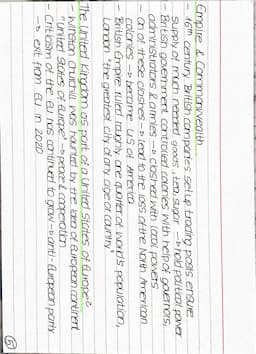 Empire & Commonwealth
16th century British companies set up trading posts ensure
supply of much needed goods, tea, sugar → hold political power
- British government controlled colonies with help of governors,
administrators & armies → clashed with local powers
- On of these clashes → lead to the loss of the North American
colonies → became US of America
- British Empire ruled roughly one quarter of world's population,
London "the greatest city of any age or country"
The United Kingdom as part of a United States of Europe?
- Winston Churchill was haunted by the idea of European continent
"United States of Europe" → peace & cooperation
- Criticism of the EU has continued to grow → anti-European party
→ exit from EU in 2020
5